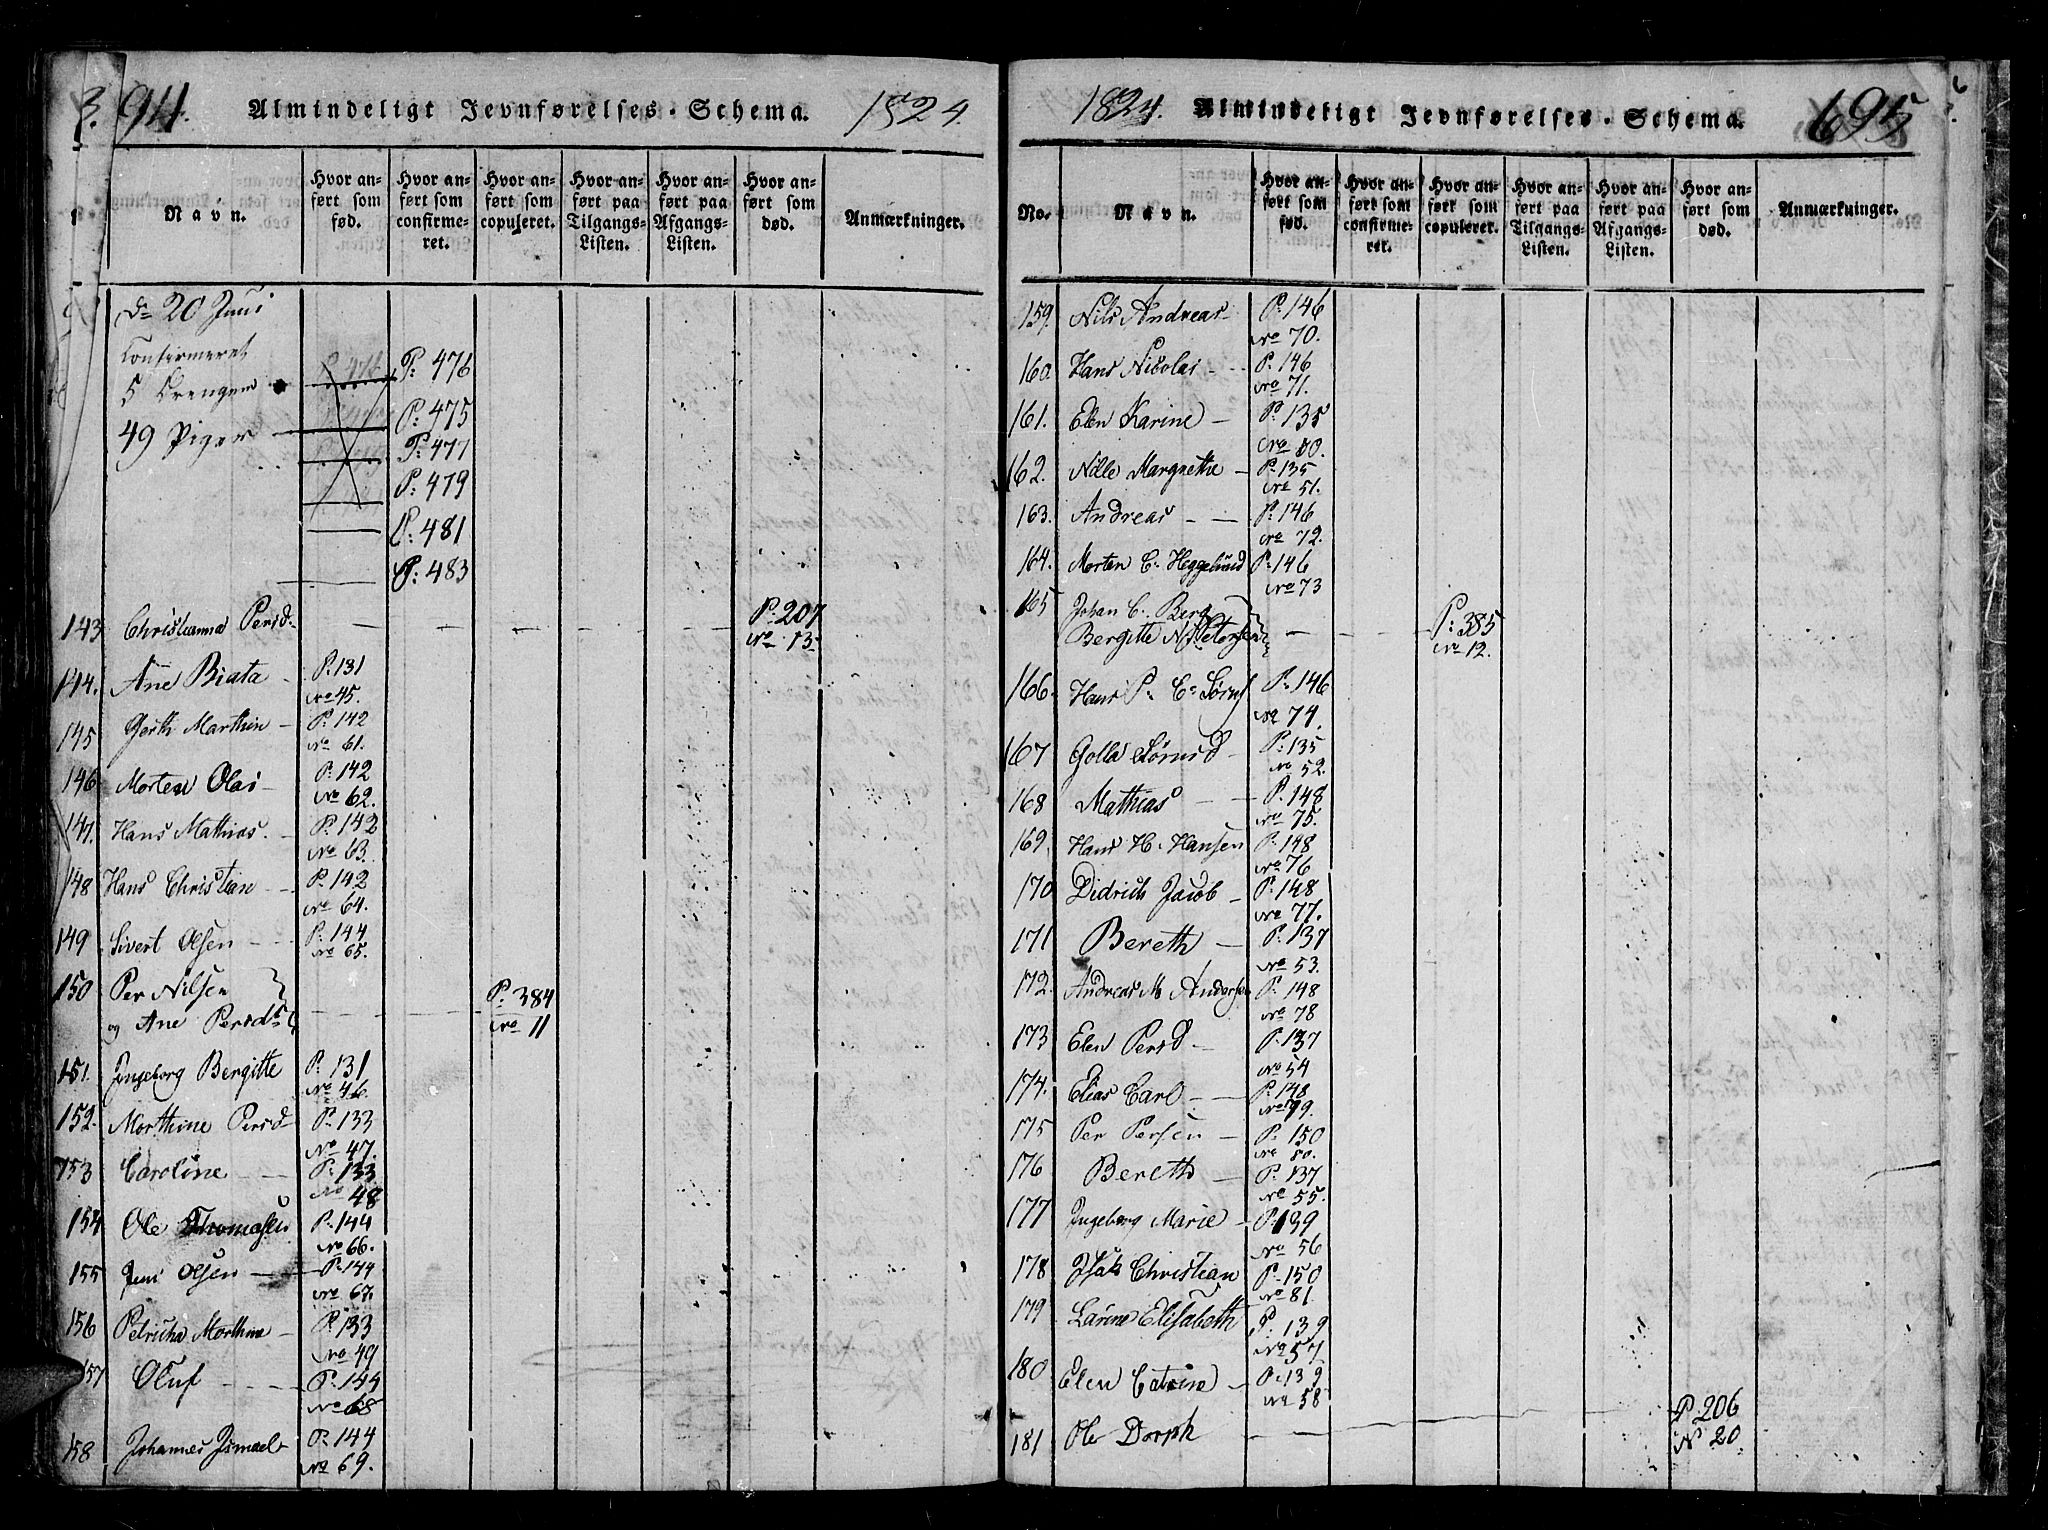 94. Almindeligt Jevnførelses-Schema. 1824.
Navn. Hvor anført som fød. Hvor anført som confirmeret. Hvor anført som copuleret. Hvor anført paa Tilgangs-Listen. Hvor anført paa Afgangs-Listen. Hvor anført som død. Anmærkninger.
20 Juni
Confirmeret P: 476
5 Drenger
P: 475
49 Piger P: 477
P: 479
P: 481
P: 483
143 Christianna Persd- P: 207
No 13
144. Ane Biata - P. 131
No 45.
145 Gerth Marthin - P: 142
No 61.
146 Morten Olai - P: 142
No 62.
147. Hans Mathias. - P: 142
No 63.
148 Hans Christian - - P: 142
No 64.
149 Sivert Olsen - - P: 144
No 65.
150 Per Nilsen P: 384
og Ane Persdt No 11
151. Ingeborg Bergitte P: 131
No 46.
152. Morthine Persd- P: 133
No 47.
153 Caroline - - P: 133
No 48
154 Ole Thomasen P: 144
No 66.
155 Jens Olsen - P: 144
No 67.
156 Petricha Morthine - P: 133
No 49
157 Oluf - - - P: 144
No 68
158 Johannes Ismael- P: 144
No 69.
1824. Almindeligt Jevnførelses-Schema. 695
No. Navn. Hvor anført som fød. Hvor anført som confirmeret. Hvor anført som copuleret. Hvor anført paa Tilgangs-Listen. Hvor anført paa Afgangs-Listen. Hvor anført som død. Anmærkninger.
159. Nils Andreas- P: 146
No 70.
160. Hans Nicolai - - P: 146
No 71.
161. Elen Karine - P: 135
No 50.
162. Nille Margrethe - P: 135
No 51.
163. Andreas - - P: 146
No 72.
164. Morten C. Heggelund P: 146
No 73
165 Johan C. Berg P: 385
Bergitte N. Petersen No 12.
166. Hans P. C. Sørens P: 146
No 74.
167 Golla Sørensd - P: 135
No 52.
168 Mathias - - P. 148
No 75.
169. Hans H. Hansen P: 148
No 76
170 Didrich Jacob - P: 148
No 77.
171 Bereth - P: 137
No 53.
172. Andreas M Andersen P: 148
No 78
173 Elen Persd - P: 137
No 54
174. Elias Carl - - P: 148
No 79.
175 Per Persen - P: 150
No 80.
176 Bereth - P: 137
No 55.
177 Ingeborg Marie - P: 139
No 56
178 Isak Christian P: 150
No 81.
179 Larine Elisabeth P: 139
No 57
180 Elen Catrine - P: 139
No 58
181 Ole Dorph P. 206
N 20.